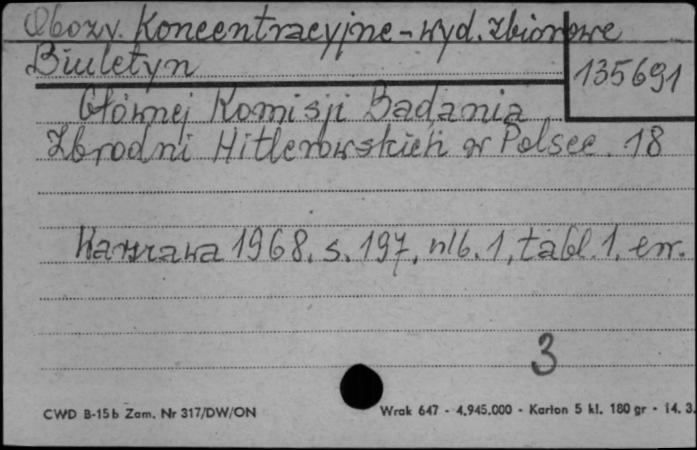 Obozy. Koncentracyjne - wyd. zbiorowe
Biuletyn
135691
Głównej Komisji Badania
Zbrodni Hitlerowskich w Polsce. 18
Warszawa 1968, s. 197, nlb. 1, tabl. 1, err.
3
CWD B-15b Zam. Nr 317/DW/ON
Wrak 647 - 4.945.000 - Karton 5 kl. 180 gr - 14. 3.